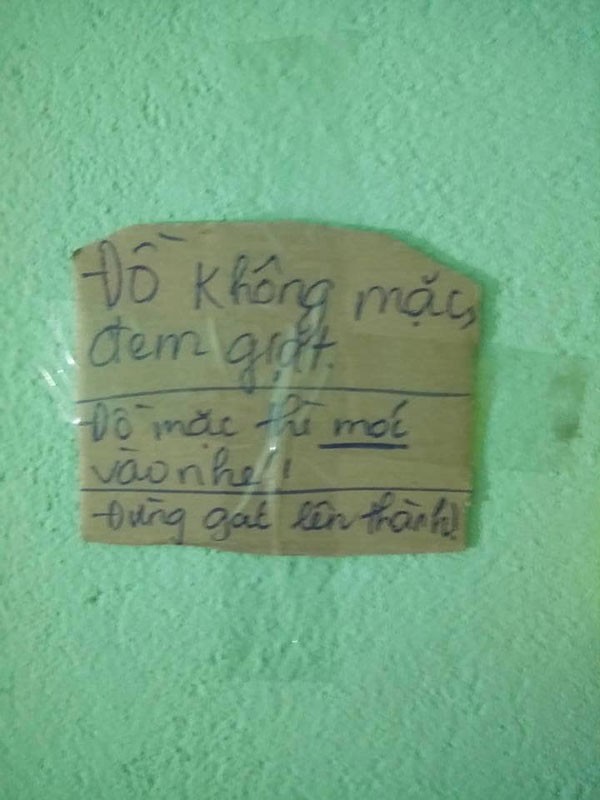 Đồ không mặc,
đem giặt.
Đồ mặc thì móc
vào nhé!
Đừng gác lên thành!